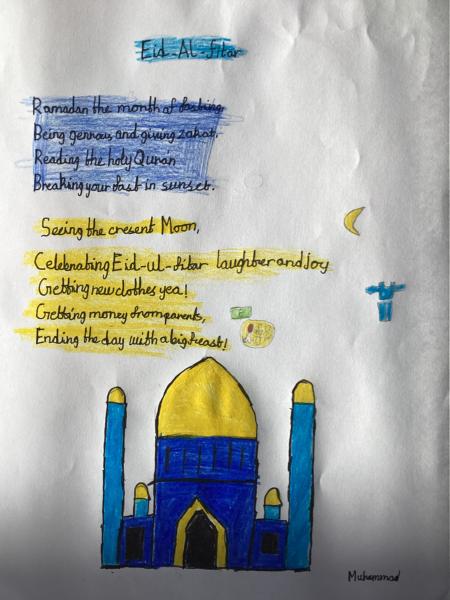 Eid-Al-fitar
Ramadan the month of fasting,
Being genrous and giving zakat.
Reading the holy Quran
Breaking your fast in sunset.
Seeing the cresent Moon,
Celebrating Eid-ul-fitar laughter and joy
Getting new clothes yea!
Getting money from parents,
Ending the day with a big feast!
Muhammad